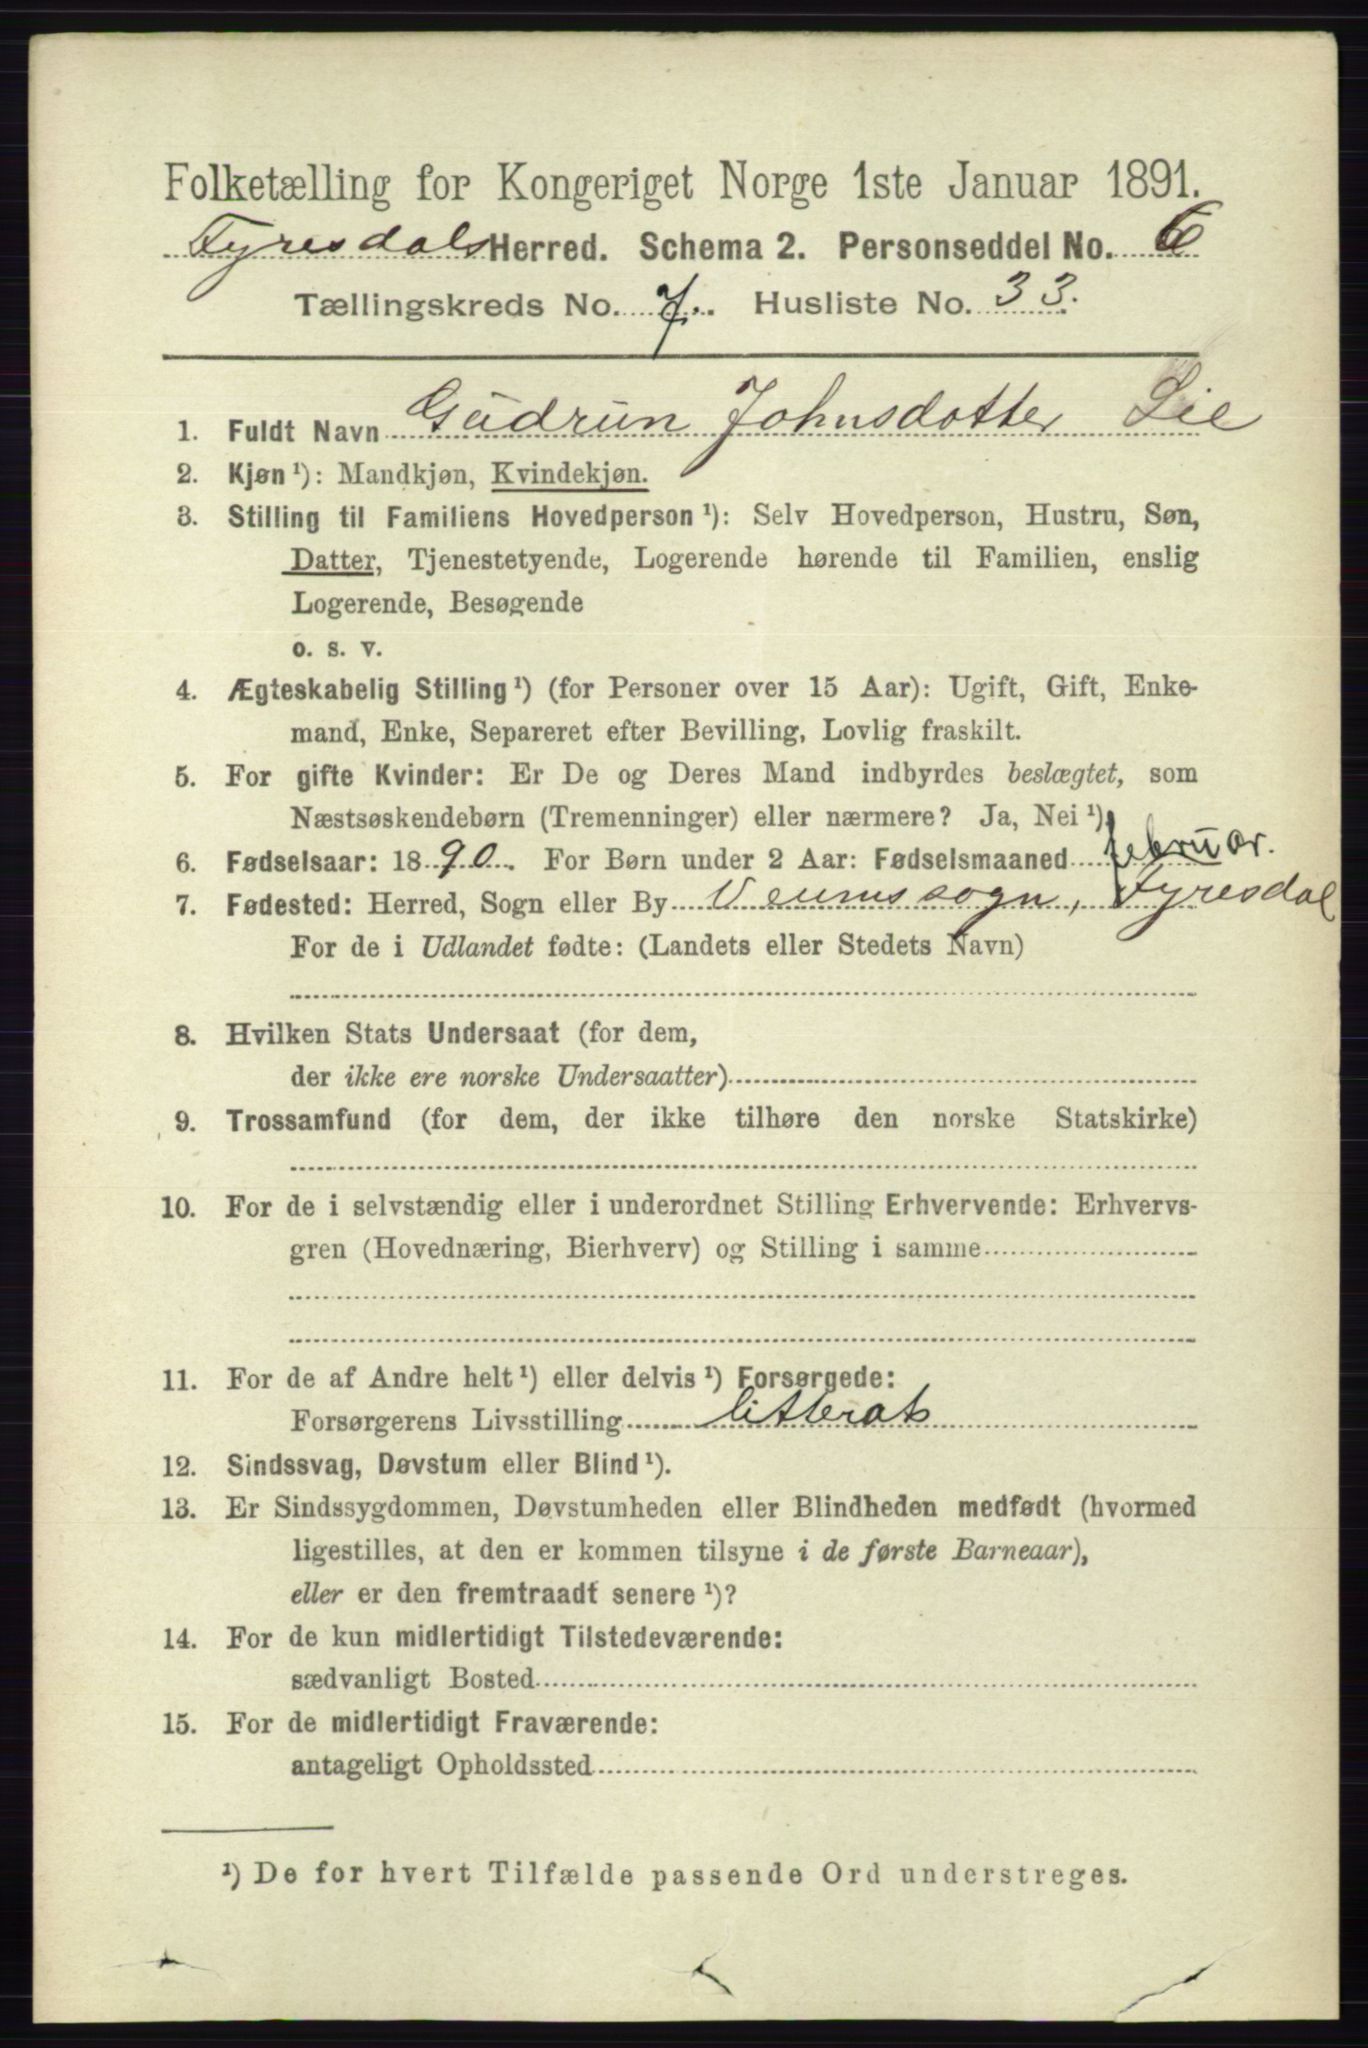 Folketælling for Kongeriget Norge 1ste Januar 1891.
Fyresdals Herred. Schema 2. Personseddel No. 6
Tællingskreds No. 7. Husliste No. 33.
1. Fuldt Navn Gudrun Johnsdotter Lie
2. Kjøn ¹): Mandkjøn, Kvindekjøn.
3. Stilling til Familiens Hovedperson ¹): Selv Hovedperson, Hustru, Søn,
Datter, Tjenestetyende, Logerende hørende til Familien, enslig
Logerende, Besøgende
o. s. v.
4. Ægteskabelig Stilling ¹) (for Personer over 15 Aar): Ugift, Gift, Enke-
mand, Enke, Separeret efter Bevilling, Lovlig fraskilt.
5. For gifte Kvinder: Er De og Deres Mand indbyrdes beslægtet, som
Næstsøskendebørn (Tremenninger) eller nærmere? Ja, Nei ¹)
6. Fødselsaar: 1890. For Børn under 2 Aar: Fødselsmaaned februar.
7. Fødested: Herred, Sogn eller By Veums sogn, Fyresdal
For de i Udlandet fødte: (Landets eller Stedets Navn)
8. Hvilken Stats Undersaat (for dem,
der ikke ere norske Undersaatter)
9. Trossamfund (for dem, der ikke tilhøre den norske Statskirke)
10. For de i selvstændig eller i underordnet Stilling Erhvervende: Erhvervs-
gren (Hovednæring, Bierhverv) og Stilling i samme
11. For de af Andre helt ¹) eller delvis ¹) Forsørgede:
Forsørgerens Livsstilling litterat
12. Sindssvag, Døvstum eller Blind ¹).
13. Er Sindssygdommen, Døvstumheden eller Blindheden medfødt (hvormed
ligestilles, at den er kommen tilsyne i de første Barneaar),
eller er den fremtraadt senere ¹)?
14. For de kun midlertidigt Tilstedeværende:
sædvanligt Bosted
15. For de midlertidigt Fraværende:
antageligt Opholdssted
¹) De for hvert Tilfælde passende Ord understreges.